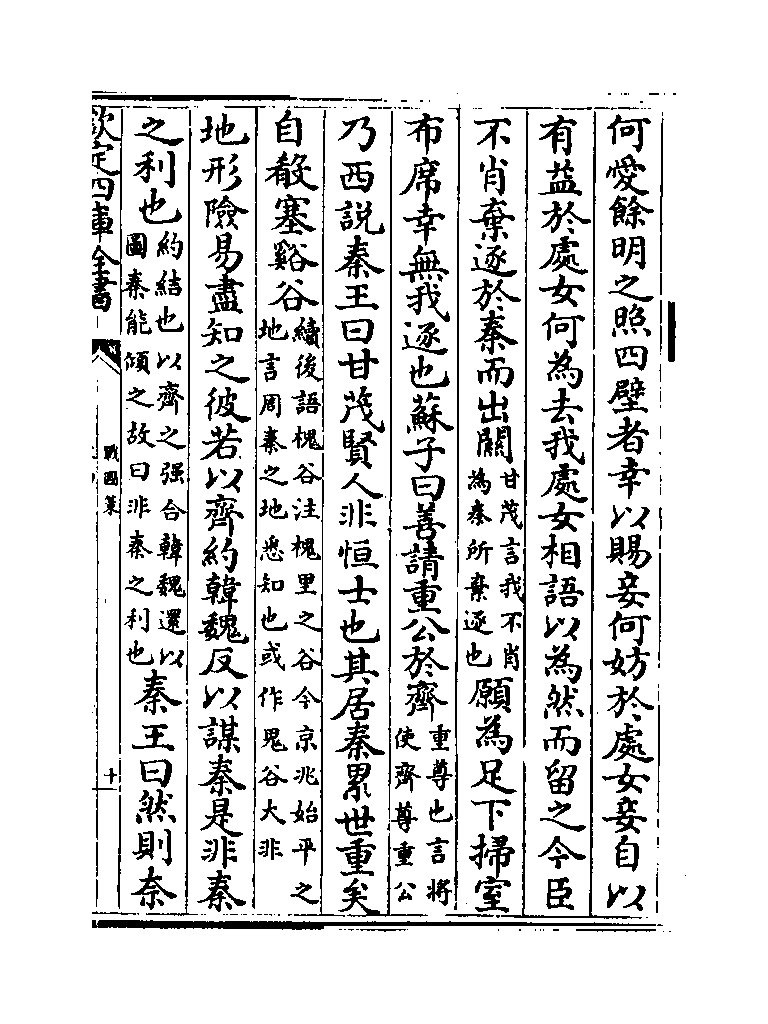 何愛餘明之照四壁者幸以賜妾何妨於處女妾自以
有益於處女何為去我處女相語以為然而留之今臣
不肖棄逐於秦而出關甘茂言我不肖為秦所棄逐也願為足下掃室
布席幸無我逐也蘇子曰善請重公於齊重尊也言將使齊尊重公
乃西說秦王曰甘茂賢人非恒士也其居秦累世重矣
自殽塞谿谷續後語槐谷注槐里之谷今京兆始平之地言周秦之地悉知也或作鬼谷大非
地形險易盡知之彼若以齊約韓魏反以謀秦是非秦
之利也約結也以齊之强合韓魏還以圖秦能傾之故曰非秦之利也秦王曰然則奈
欽定四庫全書
戰國策
十